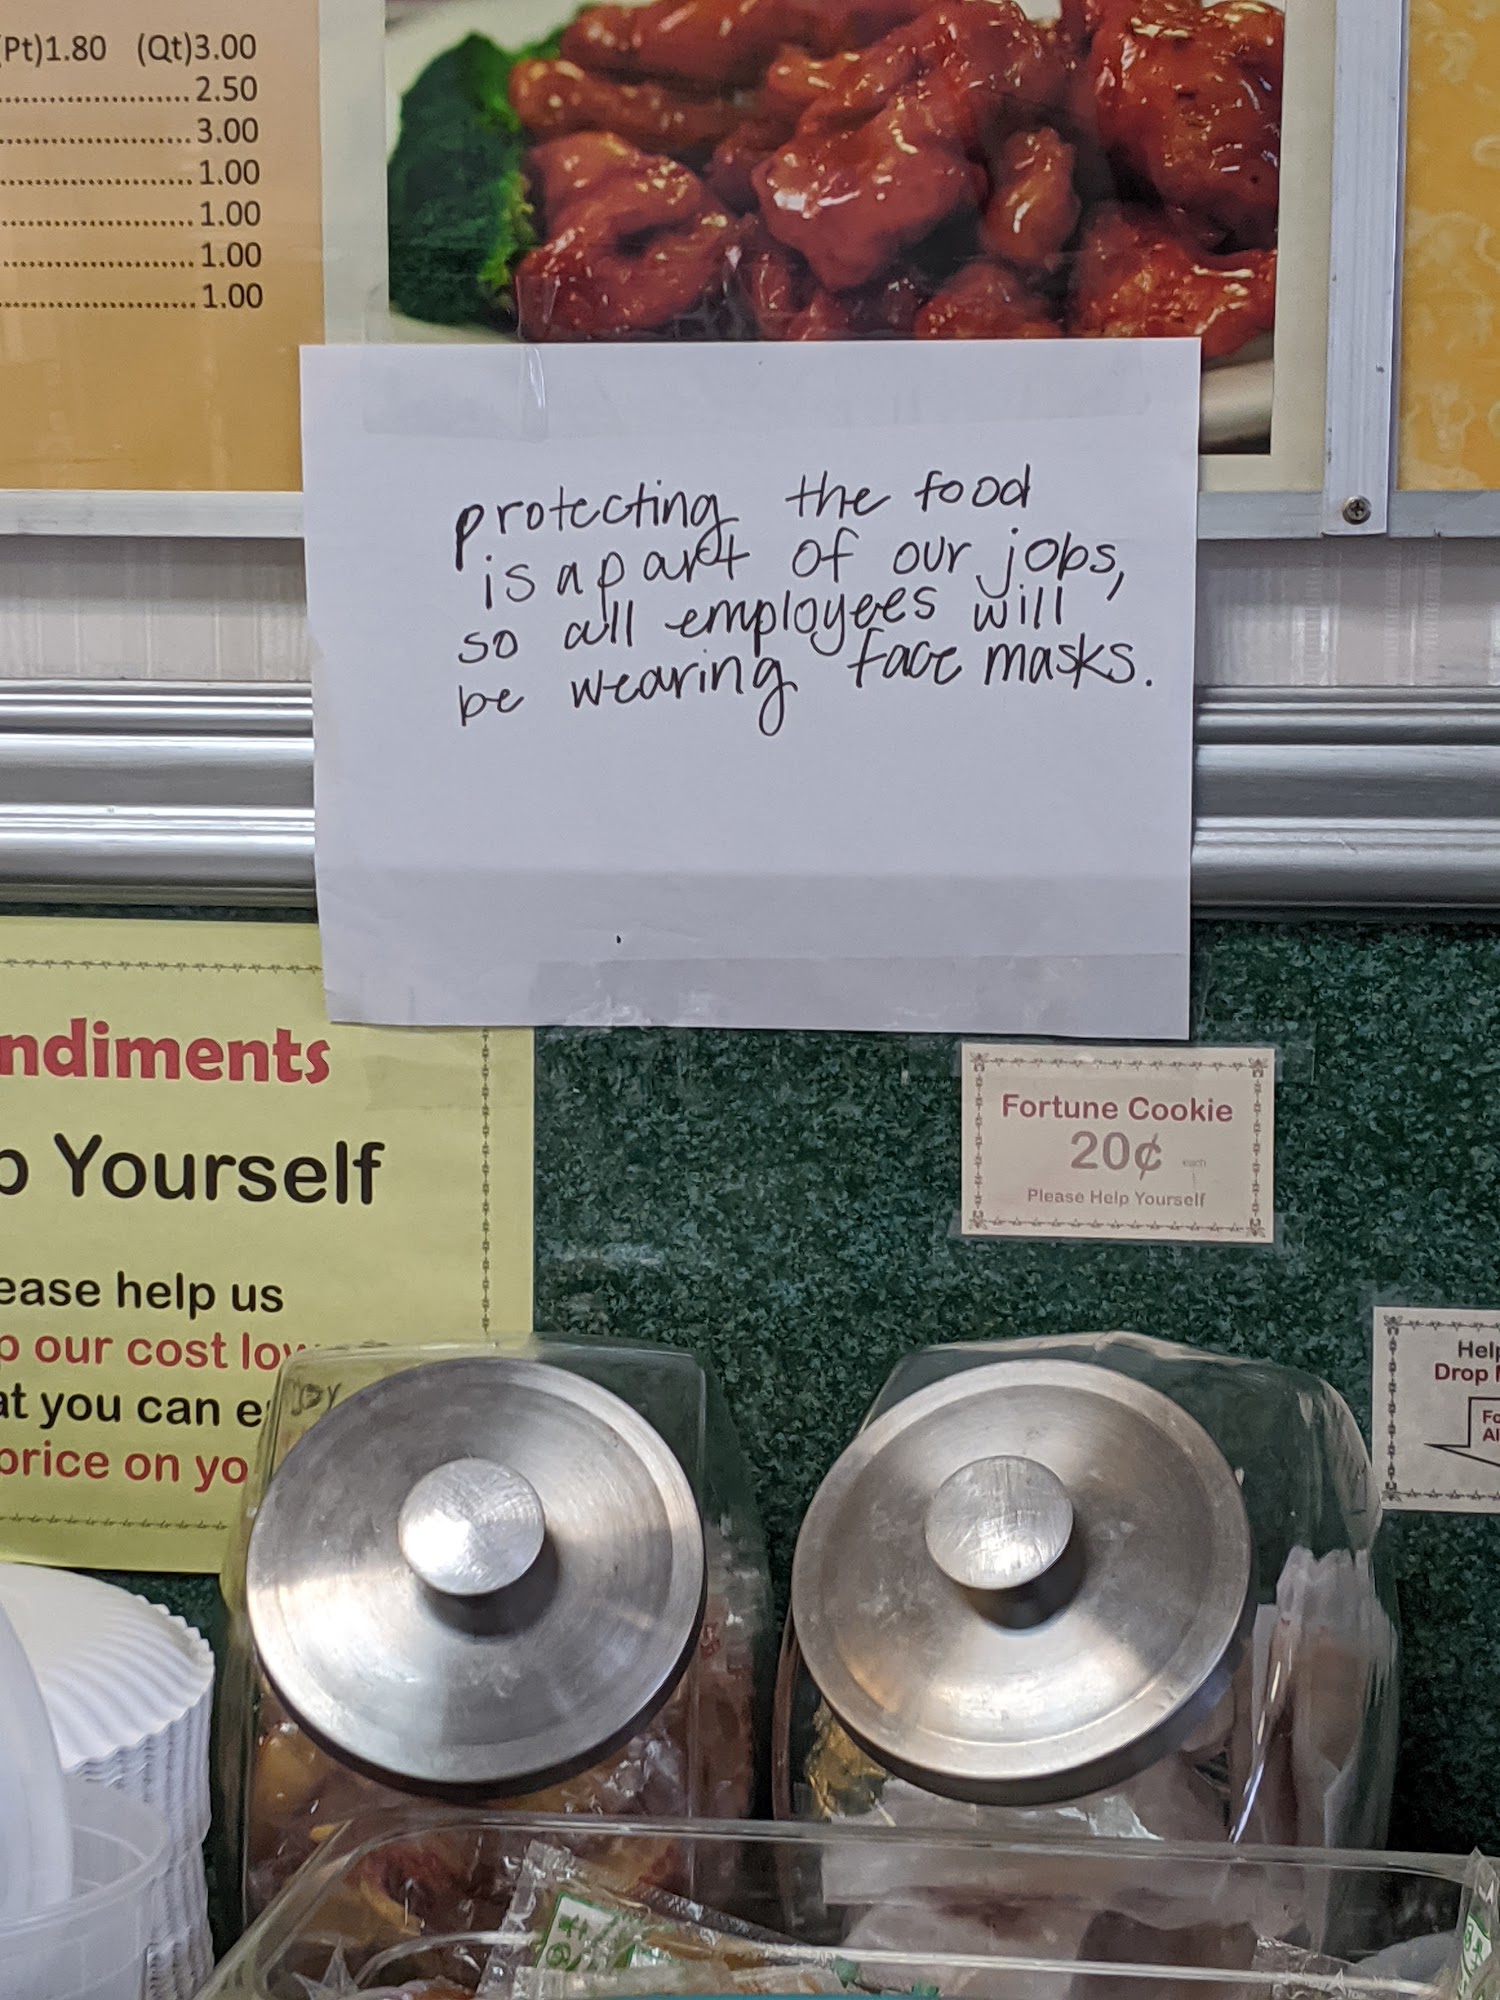 (Pt)1.80 (Qt)3.00
2.50
3.00
1.00
1.00
1.00
1.00
protecting the food
is a part of our jobs,
so all employees will
be wearing face masks.
ndiments
p Yourself
ease help us
p our cost low
at you can e
price on yo
Fortune Cookie
20¢ each
Please Help Yourself
Help
Drop